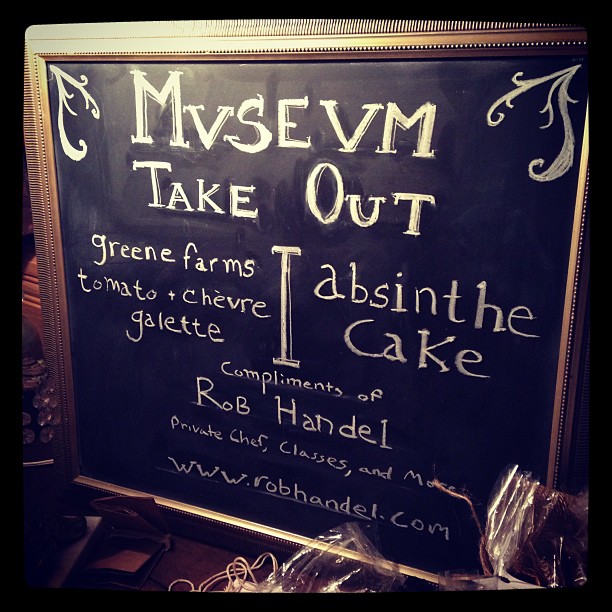 MVSEVM
TAKE OUT
greene farms
tomato + chèvre
galette
absinthe
cake
Compliments of
Rob Handel
Private Chef, Classes, and More
www.robhandel.com